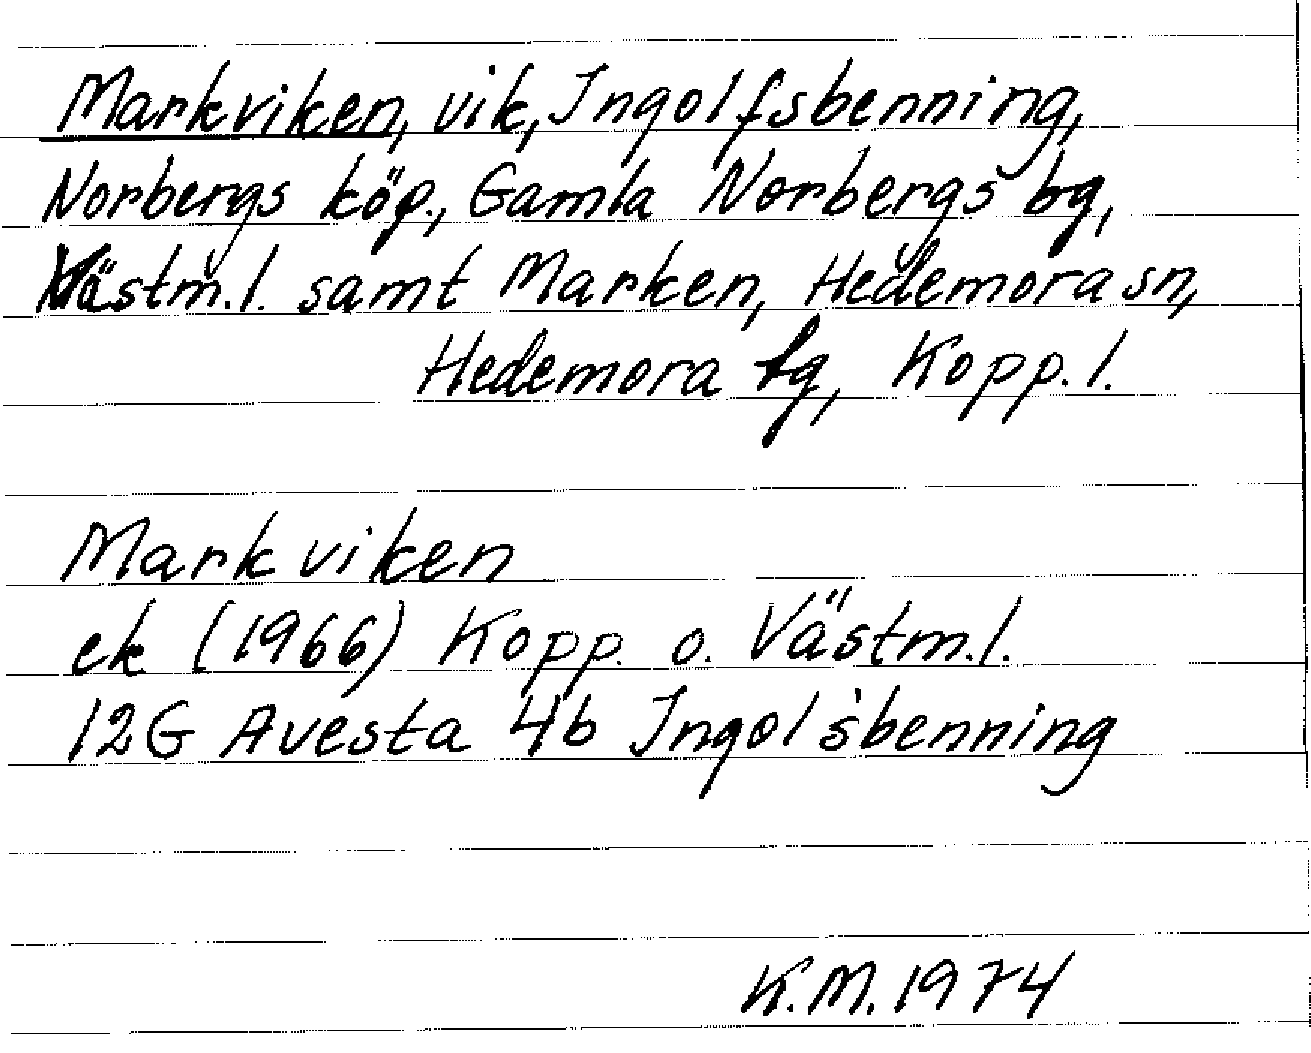 Markviken, vik, Ingolfsbenning,
Norbergs köp., Gamla Norbergs bg,
Västm.l. samt Marken, Hedemora sn,
Hedemora tg, Kopp.l.
Markviken
ek (1966) Kopp. o. Västm.l.
12G Avesta 4b Ingolsbenning
K.M. 1974